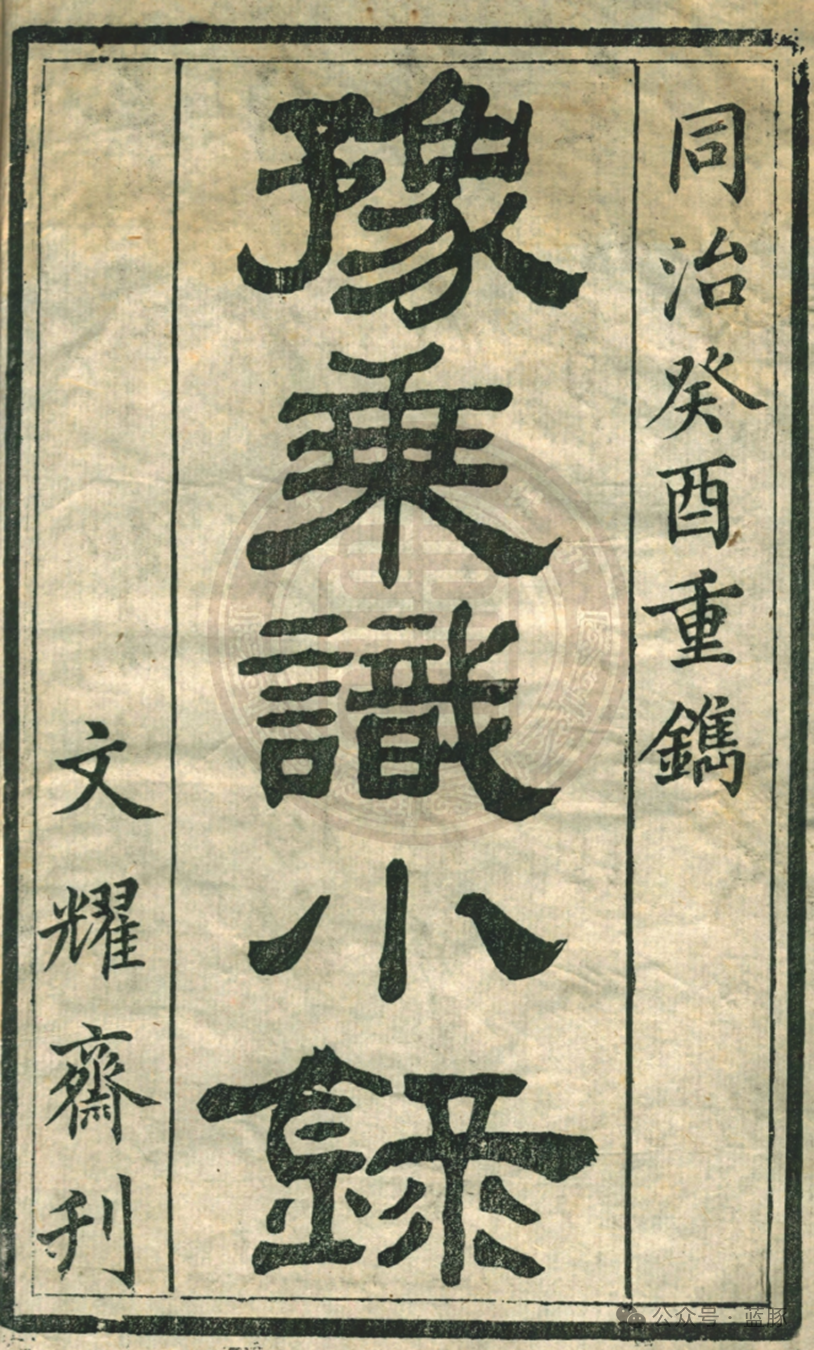 同治癸酉重鐫
豫乗識小録
文耀齋刋
公众号·蓝豚